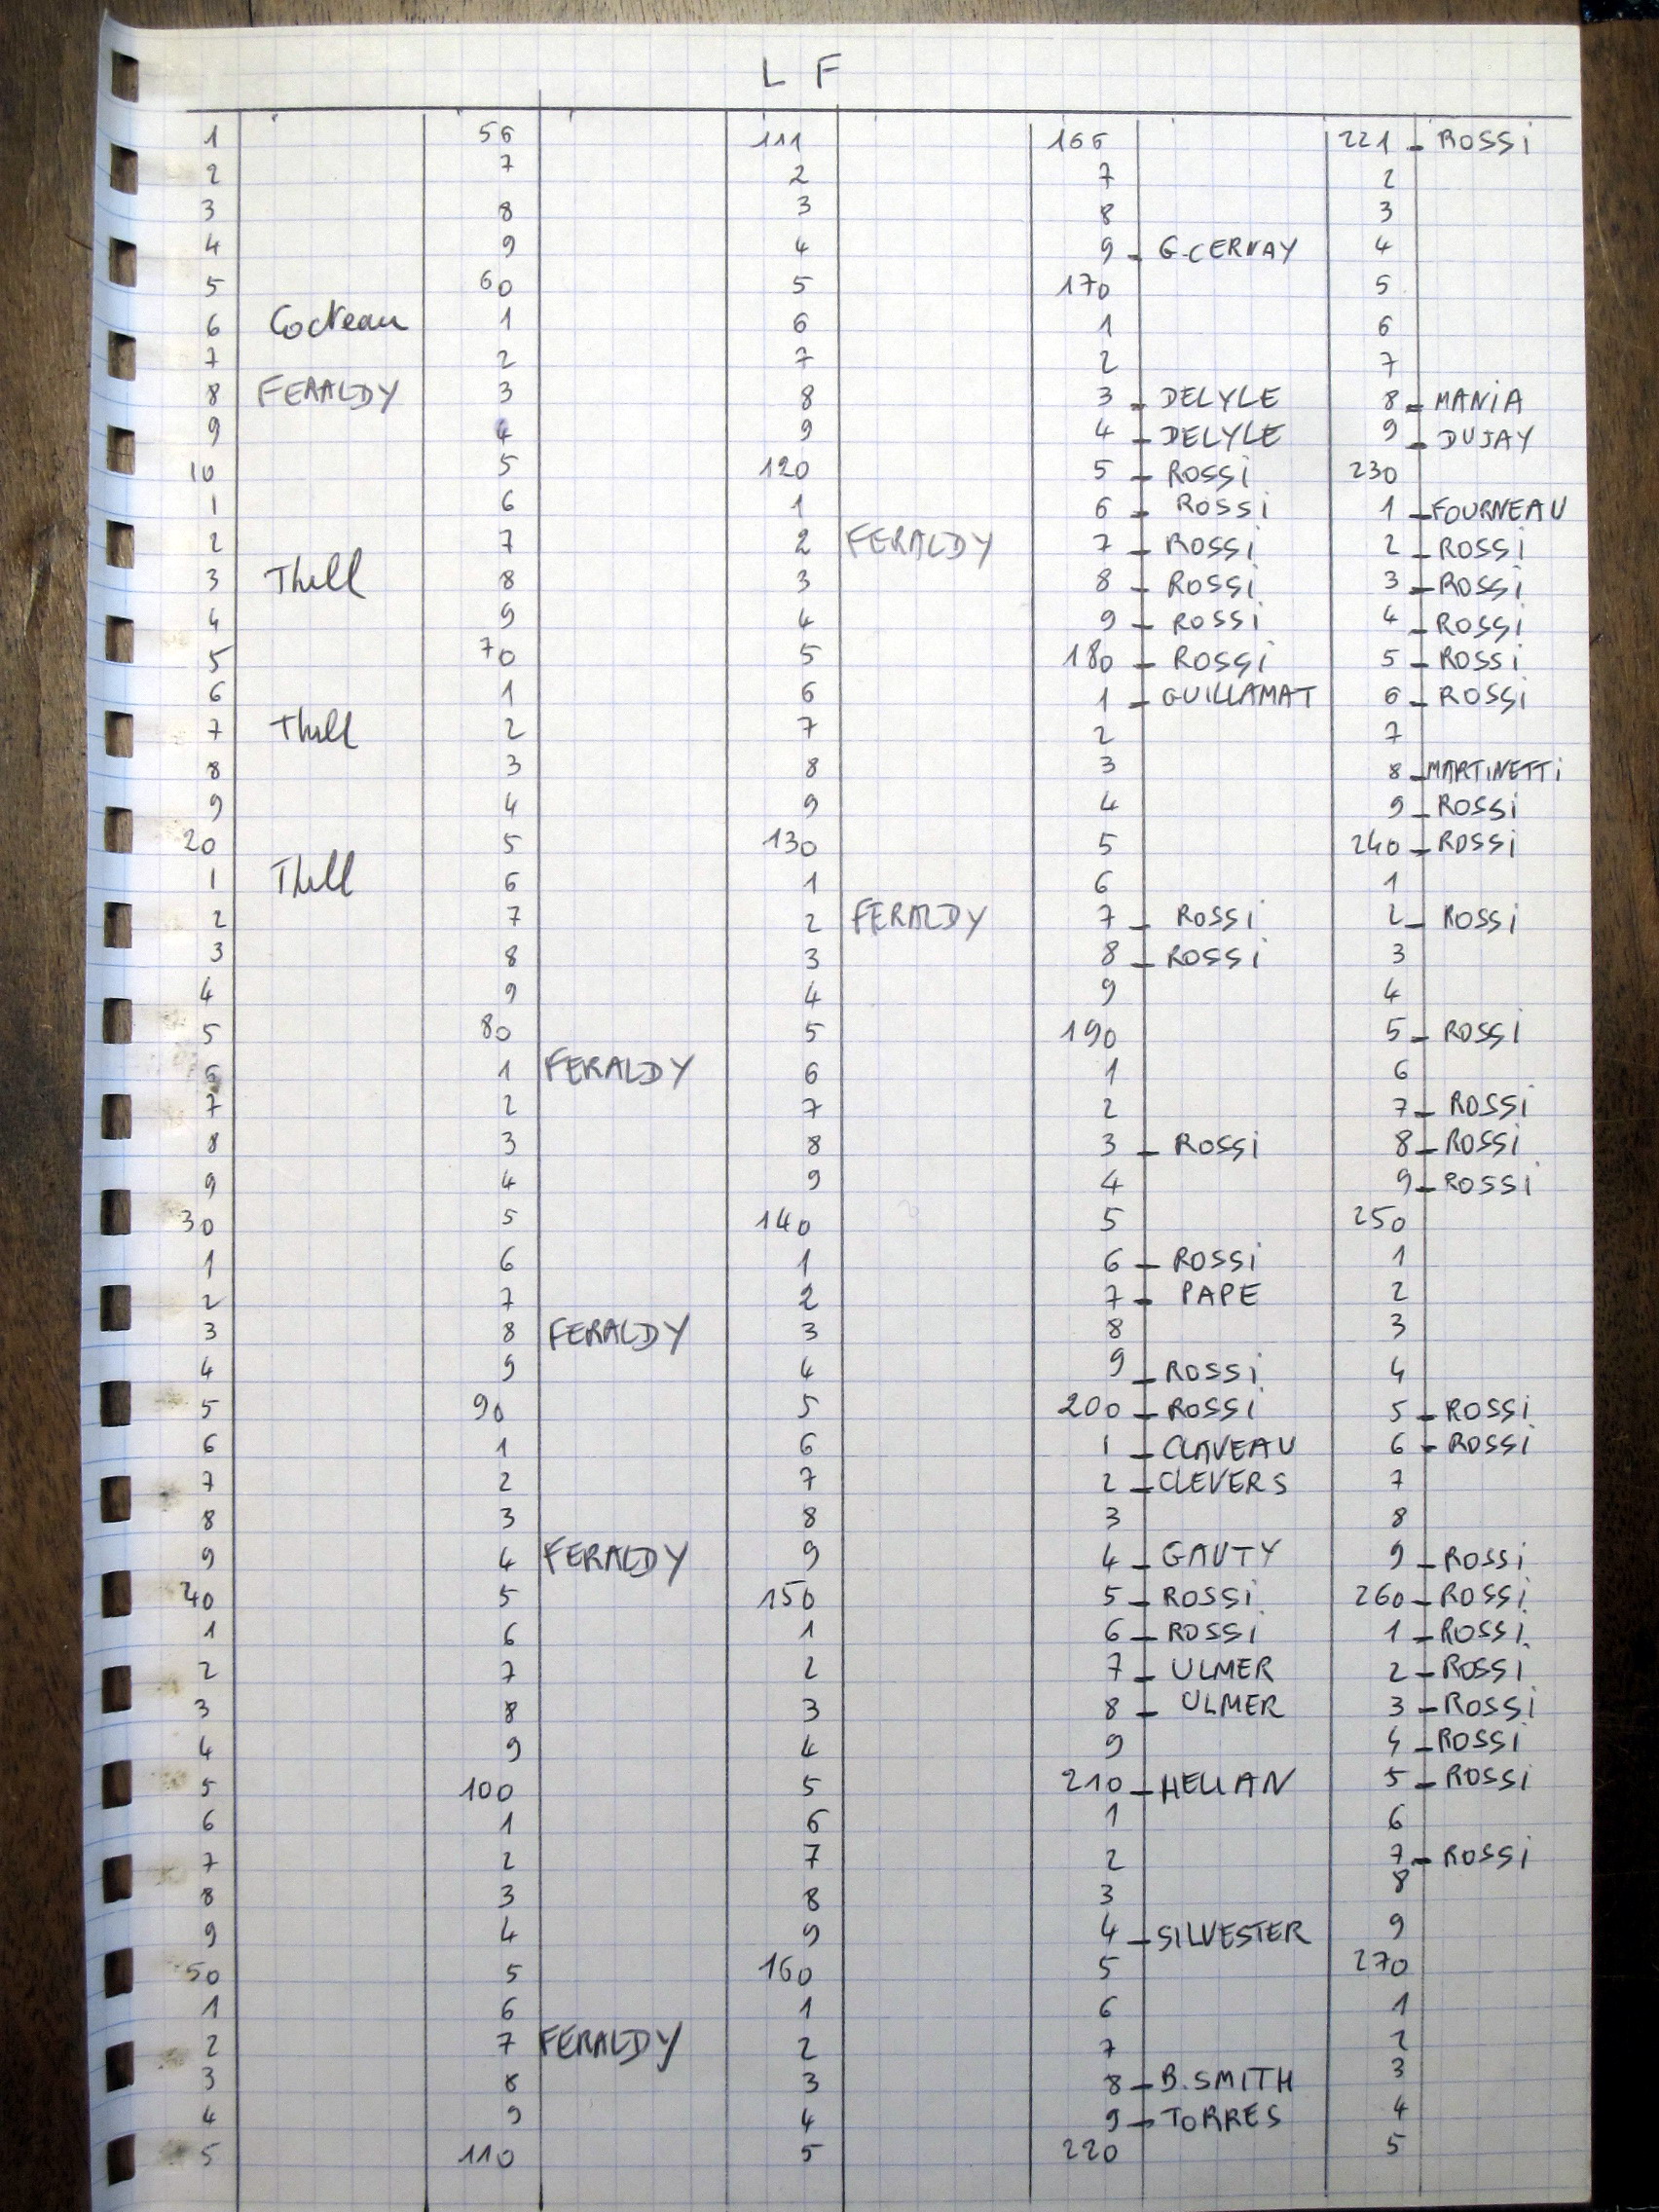 L F
1 56 111 166 221 - ROSSi
2 7 2 7 2
3 8 3 8 3
4 9 4 9 - G.CERNAY 4
5 60 5 170 5
6 Cocteau 1 6 1 6
7 2 7 2 7
8 FERALDY 3 8 3 - DELYLE 8 - MANiA
9 4 9 4 - DELYLE 9 - DUJAY
10 5 120 5 - ROSSi 230
1 6 1 6 - ROSSi 1 - FOURNEAU
2 7 2 FERALDY 7 - ROSSi 2 - ROSSi
3 Thill 8 3 8 - ROSSi 3 - ROSSi
4 9 4 9 - ROSSi 4 - ROSSi
5 70 5 180 - ROSSi 5 - ROSSi
6 1 6 1 - GUILLAMAT 6 - ROSSi
7 Thill 2 7 2 7
8 3 8 3 8 - MARTINETTi
9 4 9 4 9 - ROSSi
20 5 130 5 240 - ROSSi
1 Thill 6 1 6 1
2 7 2 FERALDY 7 - ROSSi 2 - ROSSi
3 8 3 8 - ROSSi 3
4 9 4 9 4
5 80 5 190 5 - ROSSi
6 1 FERALDY 6 1 6
7 2 7 2 7 - ROSSi
8 3 8 3 - ROSSi 8 - ROSSi
9 4 9 4 9 - ROSSi
30 5 140 5 250
1 6 1 6 - ROSSi 1
2 7 2 7 - PAPE 2
3 8 FERALDY 3 8 3
4 9 4 9 - ROSSi 4
5 90 5 200 - ROSSi 5 - ROSSi
6 1 6 1 - CLAVEAU 6 - ROSSi
7 2 7 2 - CLEVERS 7
8 3 8 3 8
9 4 FERALDY 9 4 - GAUTY 9 - ROSSi
40 5 150 5 - ROSSi 260 - ROSSi
1 6 1 6 - ROSSi 1 - ROSSi
2 7 2 7 - ULMER 2 - ROSSi
3 8 3 8 - ULMER 3 - ROSSi
4 9 4 9 4 - ROSSi
5 100 5 210 - HELIAN 5 - ROSSi
6 1 6 1 6
7 2 7 2 7 - ROSSi
8 3 8 3 8
9 4 9 4 - SILVESTER 9
50 5 160 5 270
1 6 1 6 1
2 7 FERALDY 2 7 2
3 8 3 8 - B.SMITH 3
4 9 4 9 - TORRES 4
5 110 5 220 5